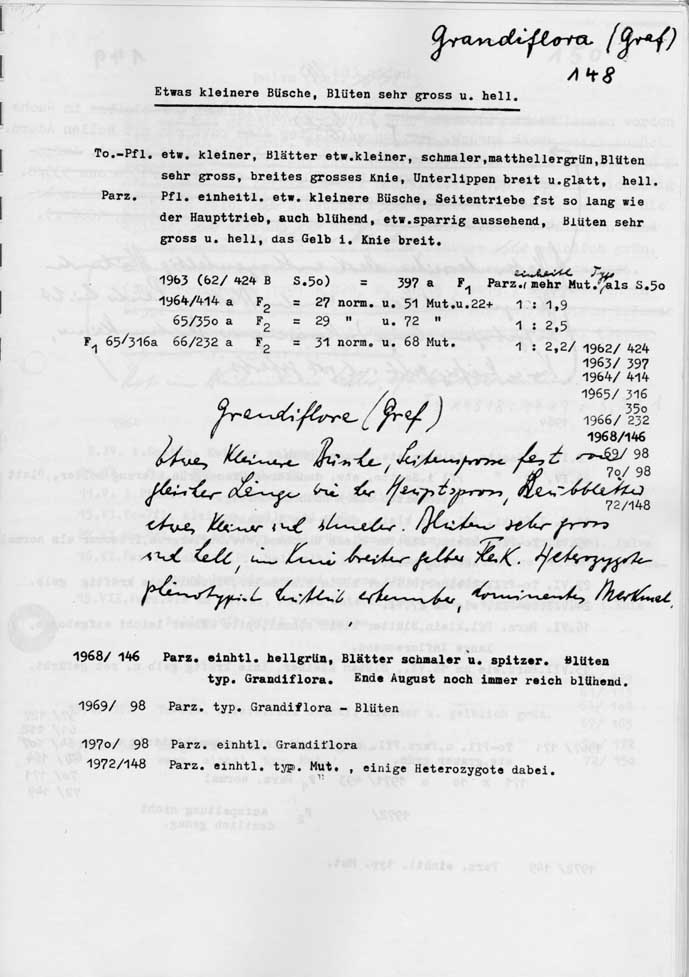 Grandiflora (Graf)
148
Etwas kleinere Büsche, Blüten sehr gross u. hell.
To.-Pfl. etw. kleiner, Blätter etw.kleiner, schmaler,matthellergrün,Blüten
sehr gross, breites grosses Knie, Unterlippen breit u.glatt, hell.
Parz. Pfl. einheitl. etw. kleinere Büsche, Seitentriebe fst so lang wie
der Haupttrieb, auch blühend, etw.sparrig aussehend, Blüten sehr
gross u. hell, das Gelb i. Knie breit.
einheitl Typ
1963 (62/ 424 B S.5o) = 397 a F1 Parz./ mehr Mut./ als S.5o
1964/414 a F2 = 27 norm. u. 51 Mut.u.22+ 1 : 1,9
65/35o a F2 = 29 " u. 72 " 1 : 2,5
F1 65/316a 66/232 a F2 = 31 norm. u. 68 Mut. 1 : 2,2/ 1962/ 424
1963/ 397
1964/ 414
1965/ 316
35o
1966/ 232
1968/146
69/ 98
7o/ 98
72/148
Grandiflora (Graf)
Etwas kleinere Büsche, Seitensprosse fast von
gleicher Länge wie der Hauptspross, Laubblätter
etwas kleiner und schmaler. Blüten sehr gross
und hell, im Knie breiter gelber Fleck. Heterozygote
phänotypisch deutlich erkennbar, dominantes Merkmal.
1968/ 146 Parz. einhtl. hellgrün, Blätter schmaler u. spitzer. Blüten
typ. Grandiflora. Ende August noch immer reich blühend.
1969/ 98 Parz. typ. Grandiflora - Blüten
197o/ 98 Parz. einhtl. Grandiflora
1972/148 Parz. einhtl. typ. Mut. , einige Heterozygote dabei.